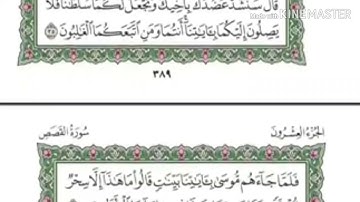 Made with KINEMASTER
قَالَ سَنَشُدُّ عَضُدَكَ بِأَخِيكَ وَنَجْعَلُ لَكُمَا سُلْطَٰنًا فَلَا
يَصِلُونَ إِلَيْكُمَا بِـَٔايَٰتِنَآ أَنتُمَا وَمَنِ ٱتَّبَعَكُمَا ٱلْغَٰلِبُونَ ٣٥
٣٨٩
الجُزْءُ العِشْرُونَ سُورَةُ القَصَصِ
فَلَمَّا جَآءَهُم مُّوسَىٰ بِـَٔايَٰتِنَا بَيِّنَٰتٍ قَالُوا۟ مَا هَٰذَآ إِلَّا سِحْرٌ